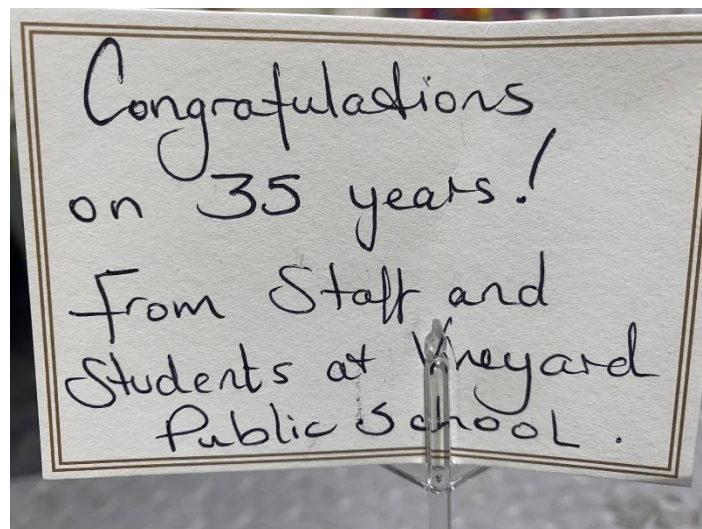 Congratulations
on 35 years!
From Staff and
Students at Vineyard
Public School.